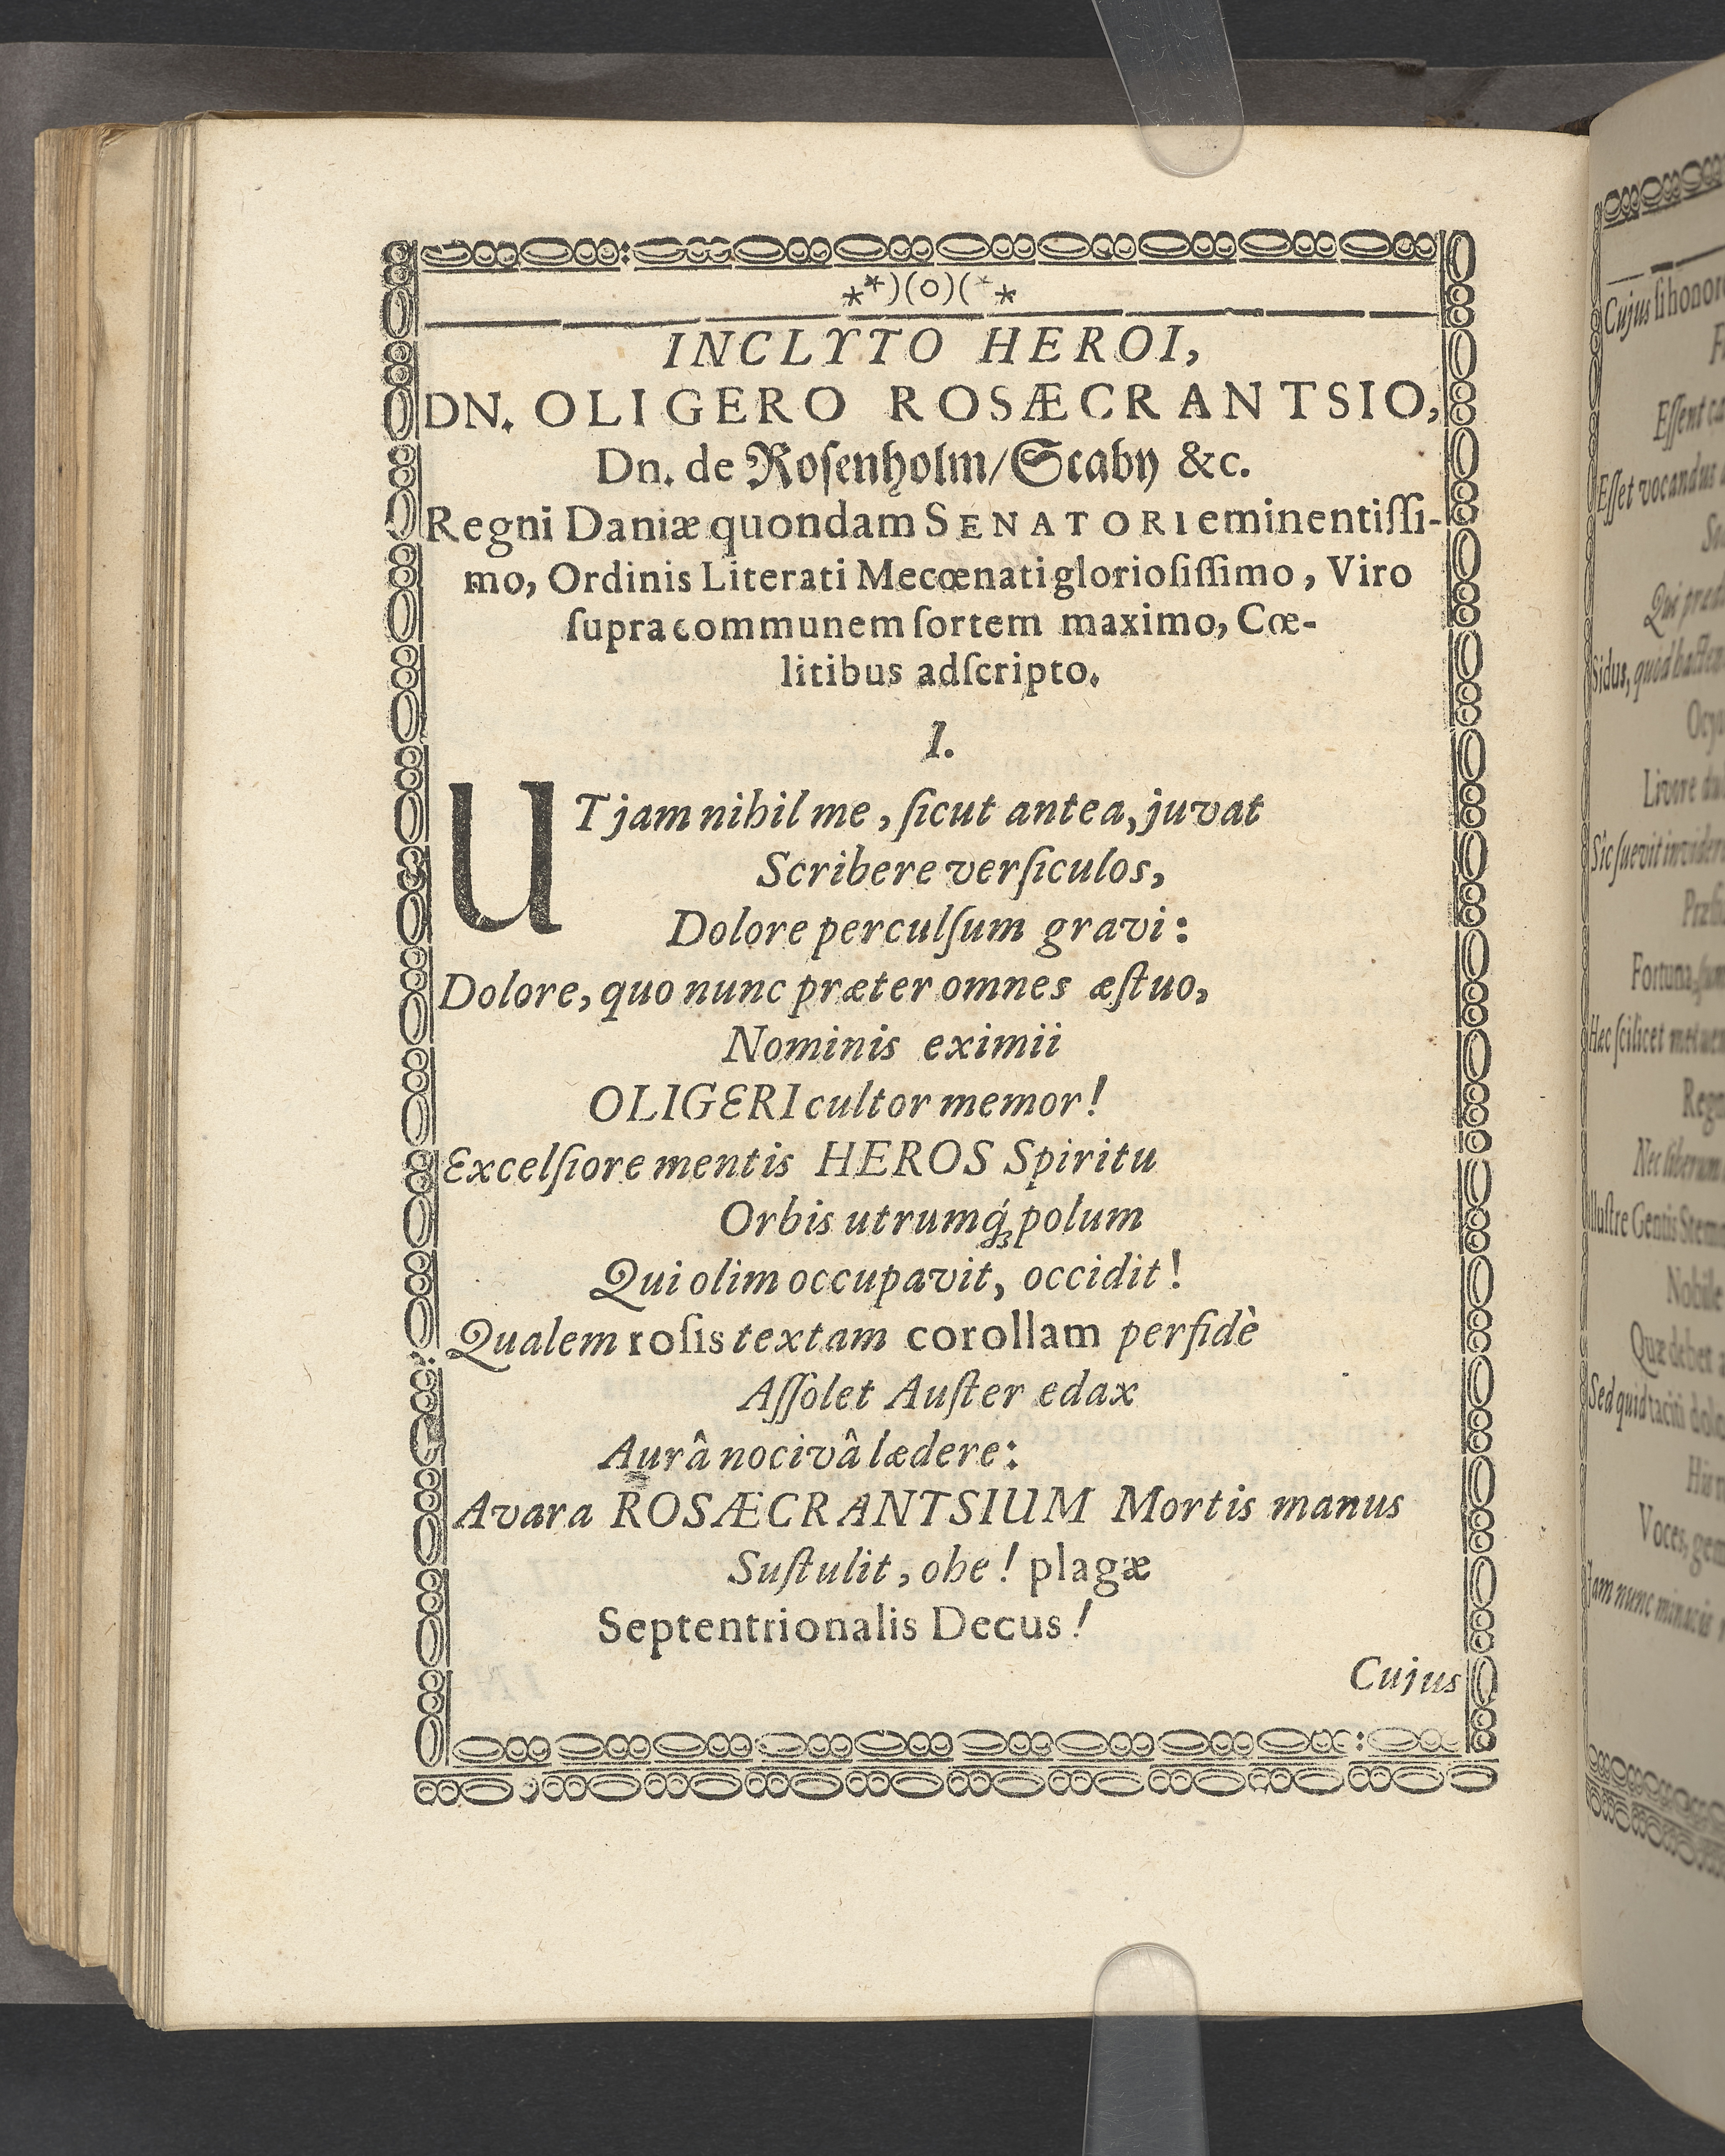 **)(o)(**
INCLYTO HEROI,
DN. OLIGERO ROSÆCRANTSIO,
Dn. de Roſenholm/Scaby &c.
Regni Daniæ quondam SENATORI eminentiſſi-
mo, Ordinis Literati Mecœnati glorioſiſſimo, Viro
ſupra communem ſortem maximo, Cœ-
litibus adſcripto.
1.
UT jam nihil me, ſicut antea, juvat
Scribere verſiculos,
Dolore perculſum gravi:
Dolore, quo nunc præter omnes æſtuo,
Nominis eximii
OLIGERI cultor memor!
Excelſiore mentis HEROS Spiritu
Orbis utrumq́ꝫ polum
Qui olim occupavit, occidit!
Qualem roſis textam corollam perfidè
Aſſolet Auſter edax
Aurâ nocivâ lædere:
Avara ROSÆCRANTSIUM Mortis manus
Suſtulit, ohe! plagæ
Septentrionalis Decus!
Cujus
Cujus ſi honor
Eſſent
Eſſet vocandus
Sidus, quod
Livore
Sic ſuevit
Fortuna
Hæc ſcilicet
Nobile
Quæ debet
Sed quid
Voces,
Jam nunc minacis